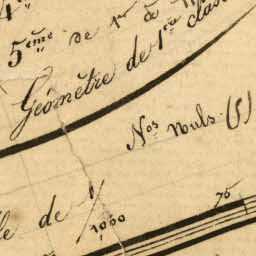 4
5ème de 1er à
Géomètre de 1ère class
Nos nuls. (5)
le de 1/1000
75